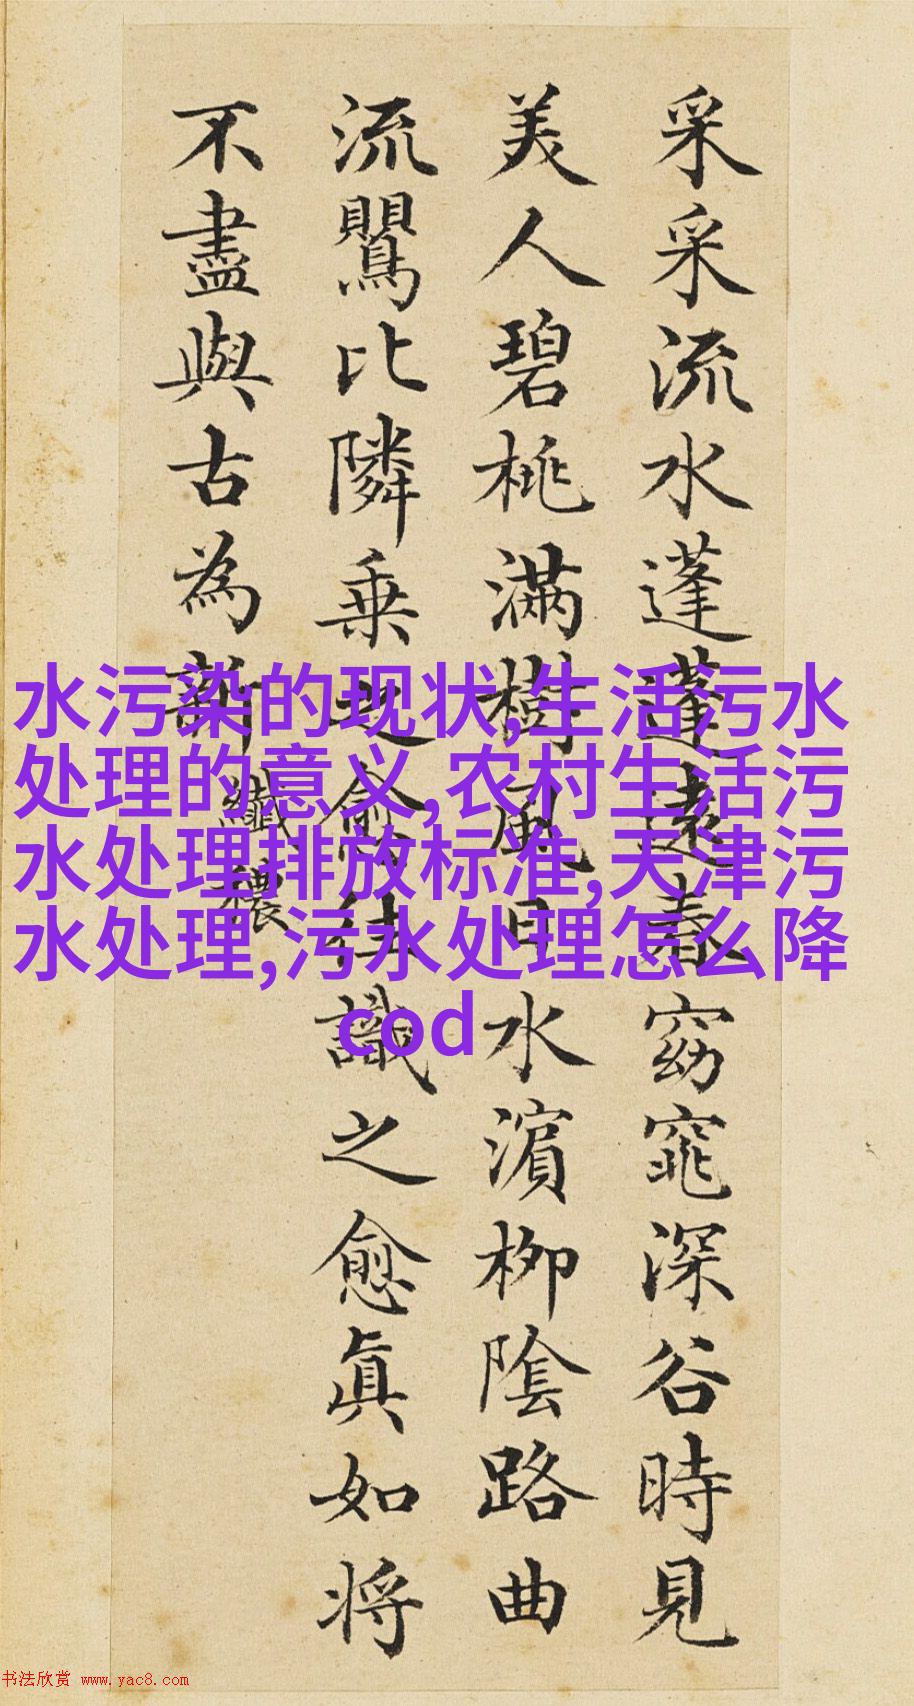 采采流水蓬蓬遠春窈窕深谷時見
美人碧桃滿樹風日水濱柳陰路曲
流鸎比隣乗之愈往識之愈眞如将
不盡與古為新 纖穠
水污染的现状,生活污水
处理的意义,农村生活污
水处理排放标准,天津污
水处理,污水处理怎么降
cod
书法欣赏 www.yac8.com